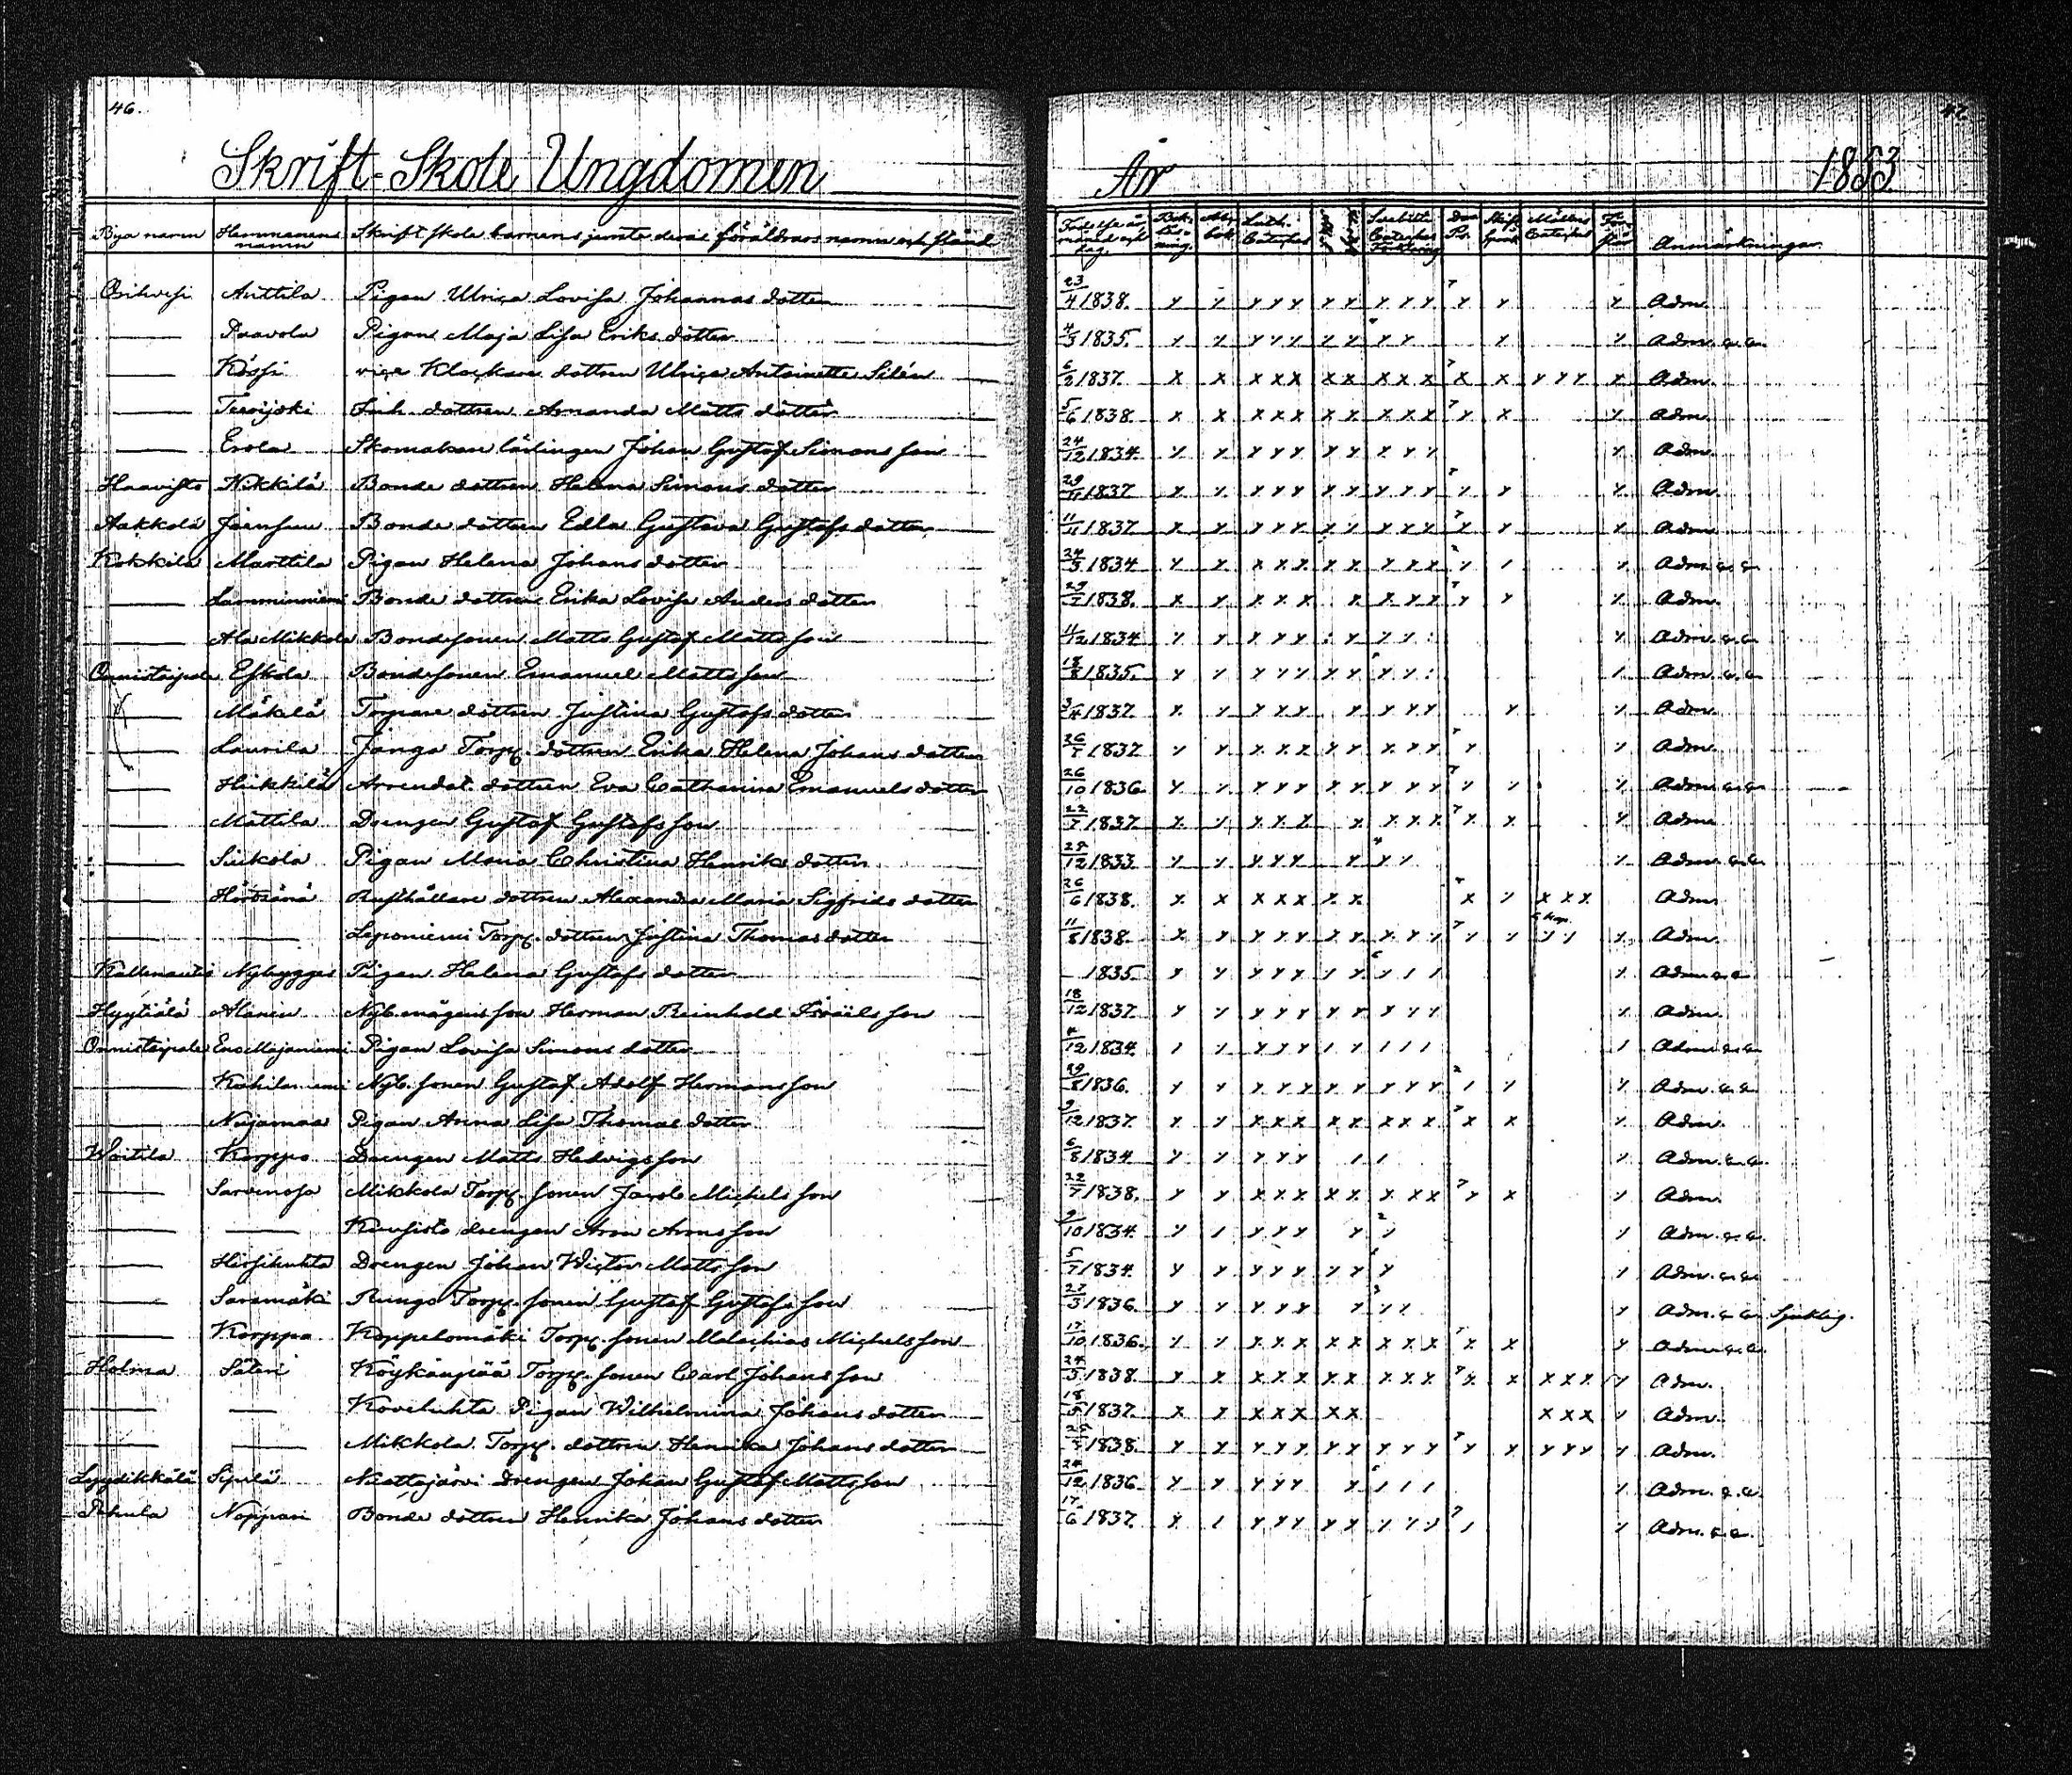 46.
47.
Skrift-Skole Ungdomen År 1853
Bya namn Hemmanens namn Skriftskole barnens jemte deras föräldrars namn och stånd Födelse år månad och dag. Bok läsning. Abc bok Luth. Cateches Svebilii Cateches Förklaring Dav. Ps. Skift språk Möllers Cateches Förstår Anmärkningar
Orihvesi Anttila Pigan Ulrica Lovisa Johannas dotter 23/4 1838. Adm.
Paavola Pigan Maja Lisa Eriks dotter 4/3 1835. Adm. a. a.
Kössi vice Klockare dottren Ulrica Antoinette Silén 6/2 1837. Adm.
Tervijoki Inh. dottren Amanda Matts dotter 5/6 1838. Adm.
Erola Skomakare lärlingen Johan Gustaf Simons son 24/12 1834. Adm.
Haavisto Nikkilä Bonde dottren Helena Simons dotter 29/11 1837 Adm.
Aakkola Jaensuu Bonde dottren Edla Gustava Gustafs dotter 11/11 1837. Adm.
Kokkila Marttila Pigan Helena Johans dotter 24/5 1834 Adm. a. a.
Lamminniemi Bonde dottren Erika Lovisa Anders dotter 1838. Adm.
Ala Mikkola Bondesonen Matts Gustaf Matts son 11/12 1834 Adm. a. a.
Onnistaipale Eskola Bondesonen Emanuel Matts son 18/8 1835. Adm. a. a.
Mäkelä Torpare dottren Justina Gustafs dotter 3/4 1837. Adm.
Laurila Janga Torp. dottren Erika Helena Johans dotter 26/7 1837 Adm.
Heikkilä Arrendat. dottren Eva Catharina Emanuels dotter 26/10 1836 Adm. a. a.
Mattila Drengen Gustaf Gustafs son 22/7 1837. Adm.
Siukola Pigan Maria Christina Henriks dotter 28/12 1833 Adm. a. a.
Rusthållare dottren Alexandra Maria Sigfrids dotter 26/6 1838. Adm.
Leponiemi Torp. dottren Justina Thomas dotter 11/8 1838. Adm.
Nybygget Pigan Helena Gustafs dotter 1835. Adm. a. a.
Hyytiälä Alanen Nyb. mågens son Herman Reinhold Israels son 18/12 1837. Adm.
Onnistaipale Eno Majaniemi Pigan Lovisa Simons dotter 4/12 1834 Adm. a. a.
Kahilaniemi Nyb. sonen Gustaf Adolf Hermans son 29/8 1836. Adm. a. a.
Najamaa Pigan Anna Lisa Thomas dotter 9/12 1837. Adm.
Woitila Korppo Drengen Matts Hedvigs son 6/8 1834 Adm. a. a.
Sarvenosa Mikkola Torp. sonen Jacob Michels son 22/7 1838. Adm.
Kuusisto drengen Aron Arons son 9/10 1834. Adm. a. a.
Hirsikuhta Drengen Johan Wictor Matts son 5/7 1834 Adm. a. a.
Saramäki Rungo Torp. sonen Gustaf Gustafs son 27/3 1836. Adm. a. a. Sjuklig.
Korppo Koppelomäki Torp. sonen Malachias Michels son 17/10 1836. Adm. a. a.
Holma Säteri Köykänpää Torp. sonen Carl Johans son 24/3 1838. Adm.
Koveluhta Pigan Wilhelmina Johans dotter 18/5 1837. Adm.
Mikkola Torp. dottren Henrika Johans dotter 1838. Adm.
Lyydikkälä Sipilä Niattajärvi Drengen Johan Gustaf Mattsson 24/12 1836 Adm. a. a.
Pehula Noppari Bonde dottren Henrika Johans dotter 17/6 1837. Adm. a. a.